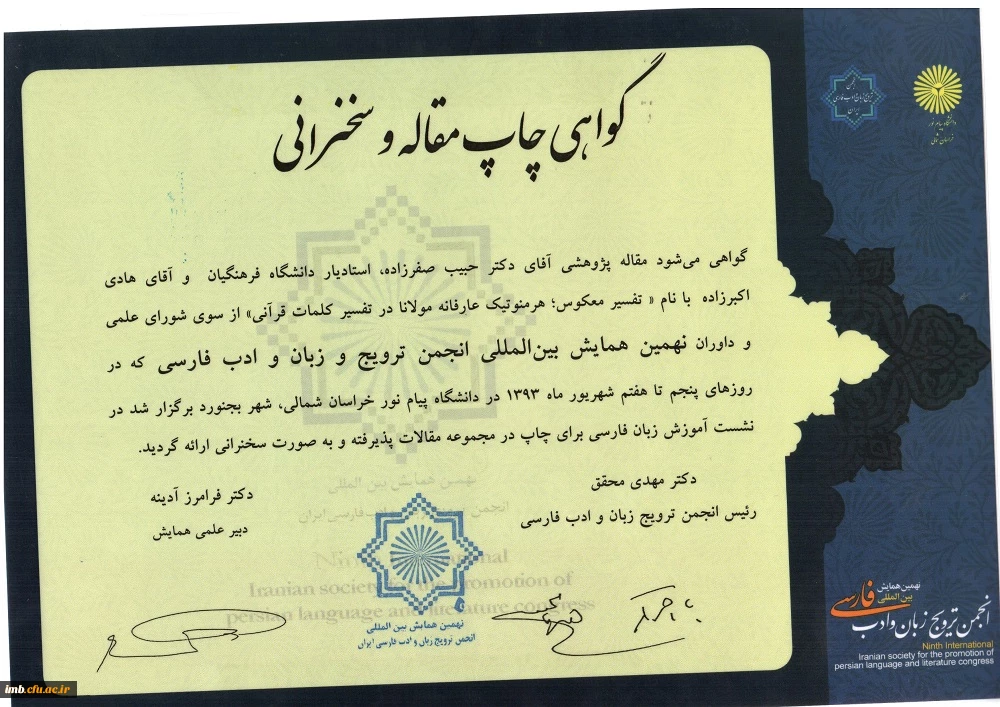 گواهی چاپ مقاله و سخنرانی
گواهی می‌شود مقاله پژوهشی آقای دکتر حبیب صفرزاده، استادیار دانشگاه فرهنگیان و آقای هادی
اکبرزاده با نام « تفسیر معکوس؛ هرمنوتیک عارفانه مولانا در تفسیر کلمات قرآنی» از سوی شورای علمی
و داوران نهمین همایش بین‌المللی انجمن ترویج و زبان و ادب فارسی که در
روزهای پنجم تا هفتم شهریور ماه ۱۳۹۳ در دانشگاه پیام نور خراسان شمالی، شهر بجنورد برگزار شد در
نشست آموزش زبان فارسی برای چاپ در مجموعه مقالات پذیرفته و به صورت سخنرانی ارائه گردید.
دکتر مهدی محقق
رئیس انجمن ترویج زبان و ادب فارسی
دکتر فرامرز آدینه
دبیر علمی همایش
نهمین همایش بین المللی
انجمن ترویج زبان و ادب فارسی ایران
Ninth International
Iranian society for the promotion of
persian language and literature congress
نهمین همایش بین المللی
انجمن ترویج زبان و ادب فارسی ایران
انجمن
ترویج زبان و ادب فارسی
ایران
دانشگاه پیام نور
خراسان شمالی
نهمین همایش
بین المللی
فارسی
انجمن ترویج زبان و ادب
Ninth International
Iranian society for the promotion of
persian language and literature congress
imb.cfu.ac.ir